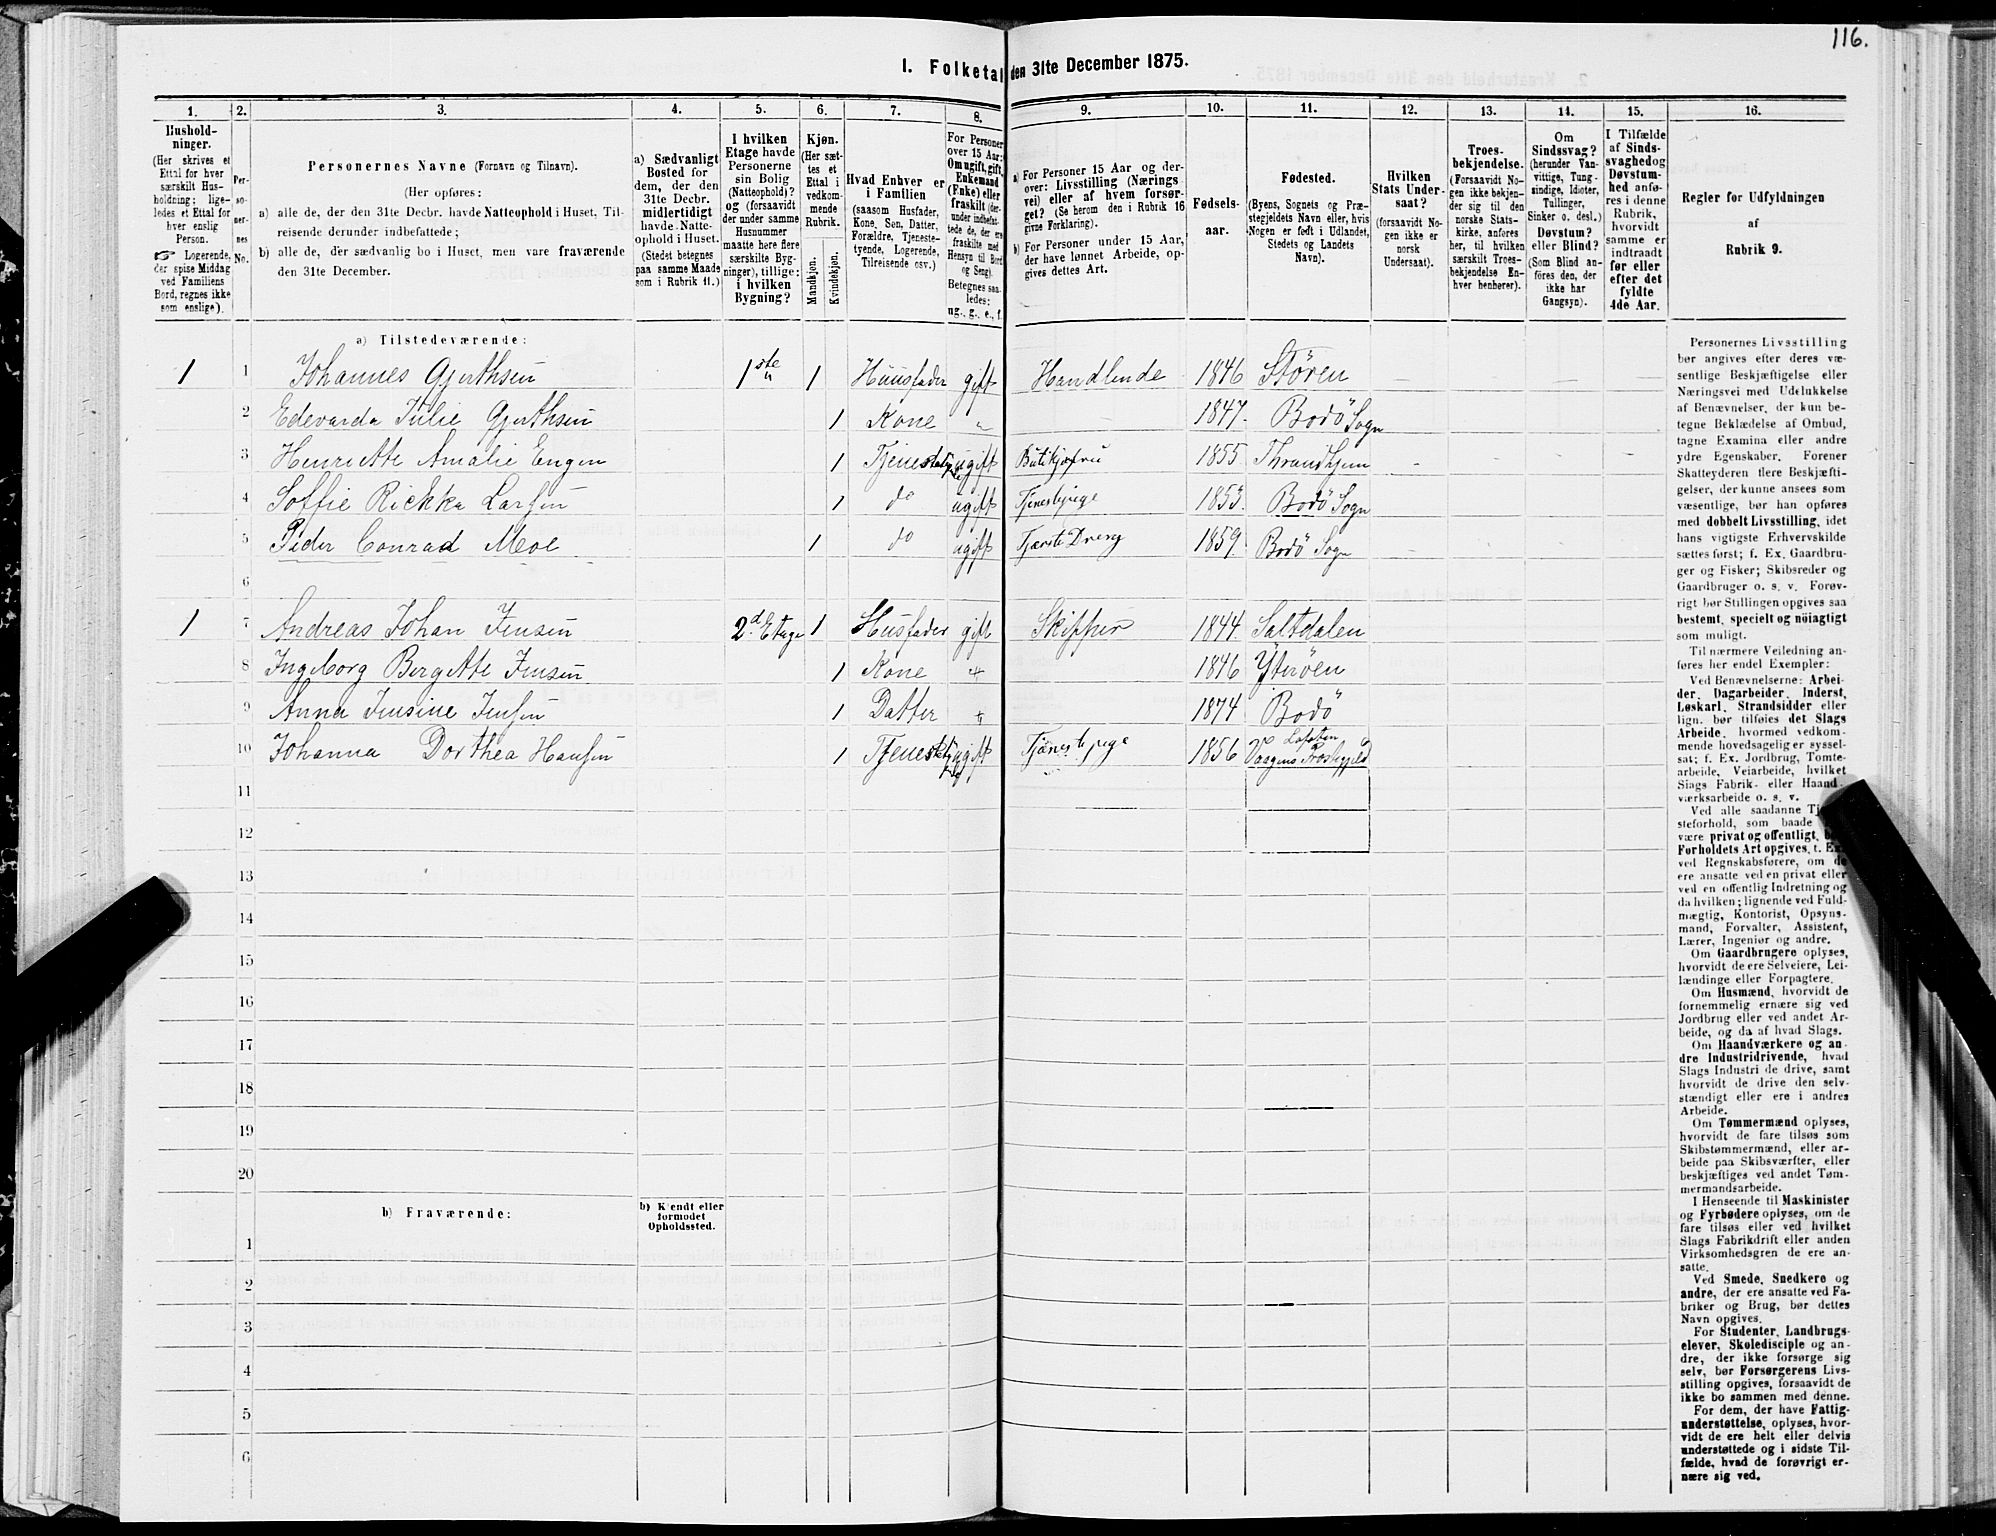 116.
I. Folketal den 31te December 1875.
1. 2. 3. 4. 5. 6. 7. 8. 9. 10. 11. 12. 13. 14. 15. 16.
Hushold-
ninger.
(Her skrives et
Ettal for hver
særskilt Hus-
holdning; lige-
ledes et Ettal for
hver enslig
Person.
☞ Logerende,
der spise Middag
ved Familiens
Bord, regnes ikke
som enslige).
Per-
so-
ner-
nes
No.
Personernes Navne (Fornavn og Tilnavn).
(Her opføres:
a) alle de, der den 31te Decbr. havde Natteophold i Huset, Til-
reisende derunder indbefattede;
b) alle de, der sædvanlig bo i Huset, men vare fraværende
den 31te December.
a) Sædvanligt
Bosted for
dem, der den
31te Decbr.
midlertidigt
havde Natte-
ophold i Huset.
(Stedet betegnes
paa samme Maade
som i Rubrik 11.)
I hvilken
Etage havde
Personerne
sin Bolig
(Natteophold)?
og (forsaavidt
der under samme
Husnummer
maatte høre flere
særskilte Byg-
ninger), tillige:
i hvilken
Bygning?
Kjøn.
(Her sæt-
tes et
Ettal i
vedkom-
mende
Rubrik.
Mandkjøn.
Kvindekjøn.
Hvad Enhver er
i Familien
(saasom Husfader,
Kone, Søn, Datter,
Forældre, Tjeneste-
tyende, Logerende,
Tilreisende osv.)
For Personer
over 15 Aar:
Om ugift, gift,
Enkemand
(Enke) eller
fraskilt (der-
under indbefat-
tede de, der ere
fraskilte med
Hensyn til Bord
og Seng).
Betegnes saa-
ledes:
ug., g., e., f.
a) For Personer 15 Aar og der-
over: Livsstilling (Nærings-
vei) eller af hvem forsør-
get? (Se herom den i Rubrik 16
givne Forklaring).
b) For Personer under 15 Aar,
der have lønnet Arbeide, op-
gives dettes Art.
Fødsels-
aar.
Fødested.
(Byens, Sognets og Præ-
stegjeldets Navn eller, hvis
Nogen er født i Udlandet,
Stedets og Landets
Navn).
Hvilken
Stats Under-
saat?
(forsaavidt No-
gen ikke er
norsk
Undersaat).
Troes-
bekjendelse.
(Forsaavidt No-
gen ikke bekjen-
der sig til den
norske Stats-
kirke, anføres
her, til hvilken
særskilt Troes-
bekjendelse En-
hver henhører).
Om
Sindssvag?
(herunder Van-
vittige, Tung-
sindige, Idioter,
Tullinger,
Sinker o. desl.)
Døvstum?
eller Blind?
(Som Blind an-
føres den, der
ikke har
Gangsyn).
I Tilfælde
af Sinds-
svaghed og
Døvstum-
hed anfø-
res i denne
Rubrik,
hvorvidt
samme er
indtraadt
før eller
efter det
fyldte
4de Aar.
Regler for Udfyldningen
af
Rubrik 9.
a) Tilstedeværende:
1 1 Johannes Gjerthsen 1ste 1 Huusfader gift Handlende 1846 Stören — — — —
2 Edevarda Julie Gjerthsen 1 Kone " 1847. Bodö Sogn
3 Henriette Amalie Engen 1 Tjenestetyende ugift Butikjøfru 1855 Thrandhjem
4 Soffie Rickka Larsen 1 do ugift Tjenestepige 1853. Bodö Sogn
5 Peder Conrad Meoe 1 do ugift Tjæneste Dreng 1859. Bodö Sogn
6
1 7 Andreas Johan Jensen 2d. Etage 1 Husfader gift Skipper 1844. Saltdalen
8 Ingeborg Bergette Jensen 1 Kone " 1846 Yteröen
9 Anna Jensine Jensen 1 Datter " 1874 Bodö
10 Johanna Dorthea Hansen 1 Tjenestetyende ugift Tjænestepige 1856 Vaagens Præstegjeld Lofoten
11
12
13
14
15
16
17
18
19
20
b) Fraværende:
b) Kjendt eller
formodet
Opholdssted.
1
2
3
4
5
6
Personernes Livsstilling
bør angives efter deres væ-
sentlige Beskjæftigelse eller
Næringsvei med Udelukkelse
af Benævnelser, der kun be-
tegne Beklædelse af Ombud,
tagne Examina eller andre
ydre Egenskaber. Forener
Skatteyderen flere Beskjæfti-
gelser, der kunne ansees som
væsentlige, bør han opføres
med dobbelt Livsstilling, idet
hans vigtigste Erhvervskilde
sættes først; f. Ex. Gaardbru-
ger og Fisker; Skibsreder og
Gaardbruger o. s. v. Forøv-
rigt bør Stillingen opgives saa
bestemt, specielt og nöiagtigt
som muligt.
Til nærmere Veiledning an-
føres her endel Exempler:
Ved Benævnelserne: Arbei-
der, Dagarbeider, Inderst,
Løskarl, Strandsidder eller
lign. bør tilføies det Slags
Arbeide, hvormed vedkom-
mende hovedsagelig er syssel-
sat; f. Ex. Jordbrug, Tomte-
arbeide, Veiarbeide, hvilket
Slags Fabrik- eller Haand-
værksarbeide o. s. v.
Ved alle saadanne
steforhold, som baade
være privat og offentligt,
Forholdets Art opgives, f. Ex.
ved Regnskabsførere, om de
ere ansatte ved en privat eller
ved en offentlig Indretning og
da hvilken; lignende ved Fuld-
mægtig, Kontorist, Opsyns-
mand, Forvalter, Assistent,
Lærer, Ingeniør og andre.
Om Gaardbrugere oplyses,
hvorvidt de ere Selveiere, Lei-
lændinge eller Forpagtere.
Om Husmænd, hvorvidt de
fornemmelig ernære sig ved
Jordbrug eller ved andet Ar-
beide, og da af hvad Slags.
Om Haandværkere og an-
dre Industridrivende, hvad
Slags Industri de drive, samt
hvorvidt de drive den selv-
stændigt eller ere i andres
Arbeide.
Om Tømmermænd oplyses,
hvorvidt de fare tilsøs som
Skibstømmermænd, eller ar-
beide paa Skibsværfter, eller
beskjæftiges ved andet Tøm-
mermandsarbeide.
I Henseende til Maskinister
og Fyrbødere oplyses, om de
fare tilsøs eller ved hvilket
Slags Fabrikdrift eller anden
Virksomhedsgren de ere an-
satte.
Ved Smede, Snedkere og
andre, der ere ansatte ved Fa-
briker og Brug, bør dettes
Navn opgives.
For Studenter, Landbrugs-
elever, Skoledisciple og an-
dre, der ikke forsørge sig
selv, bør Forsørgerens Livs-
stilling opgives, forsaavidt de
ikke bo sammen med denne.
For dem, der have Fattig-
understøttelse, oplyses, hvor-
vidt de ere helt eller delvis
understøttede og i sidste Til-
fælde, hvad de forøvrigt er-
nære sig ved.